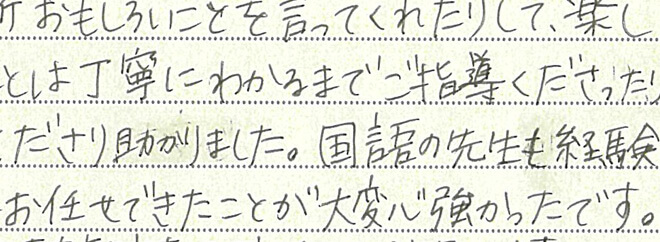 おもしろいことを言ってくれたりして、楽し
とは丁寧にわかるまでご指導くださったり
ださり助かりました。国語の先生も経験
お任せできたことが大変心強かったです。